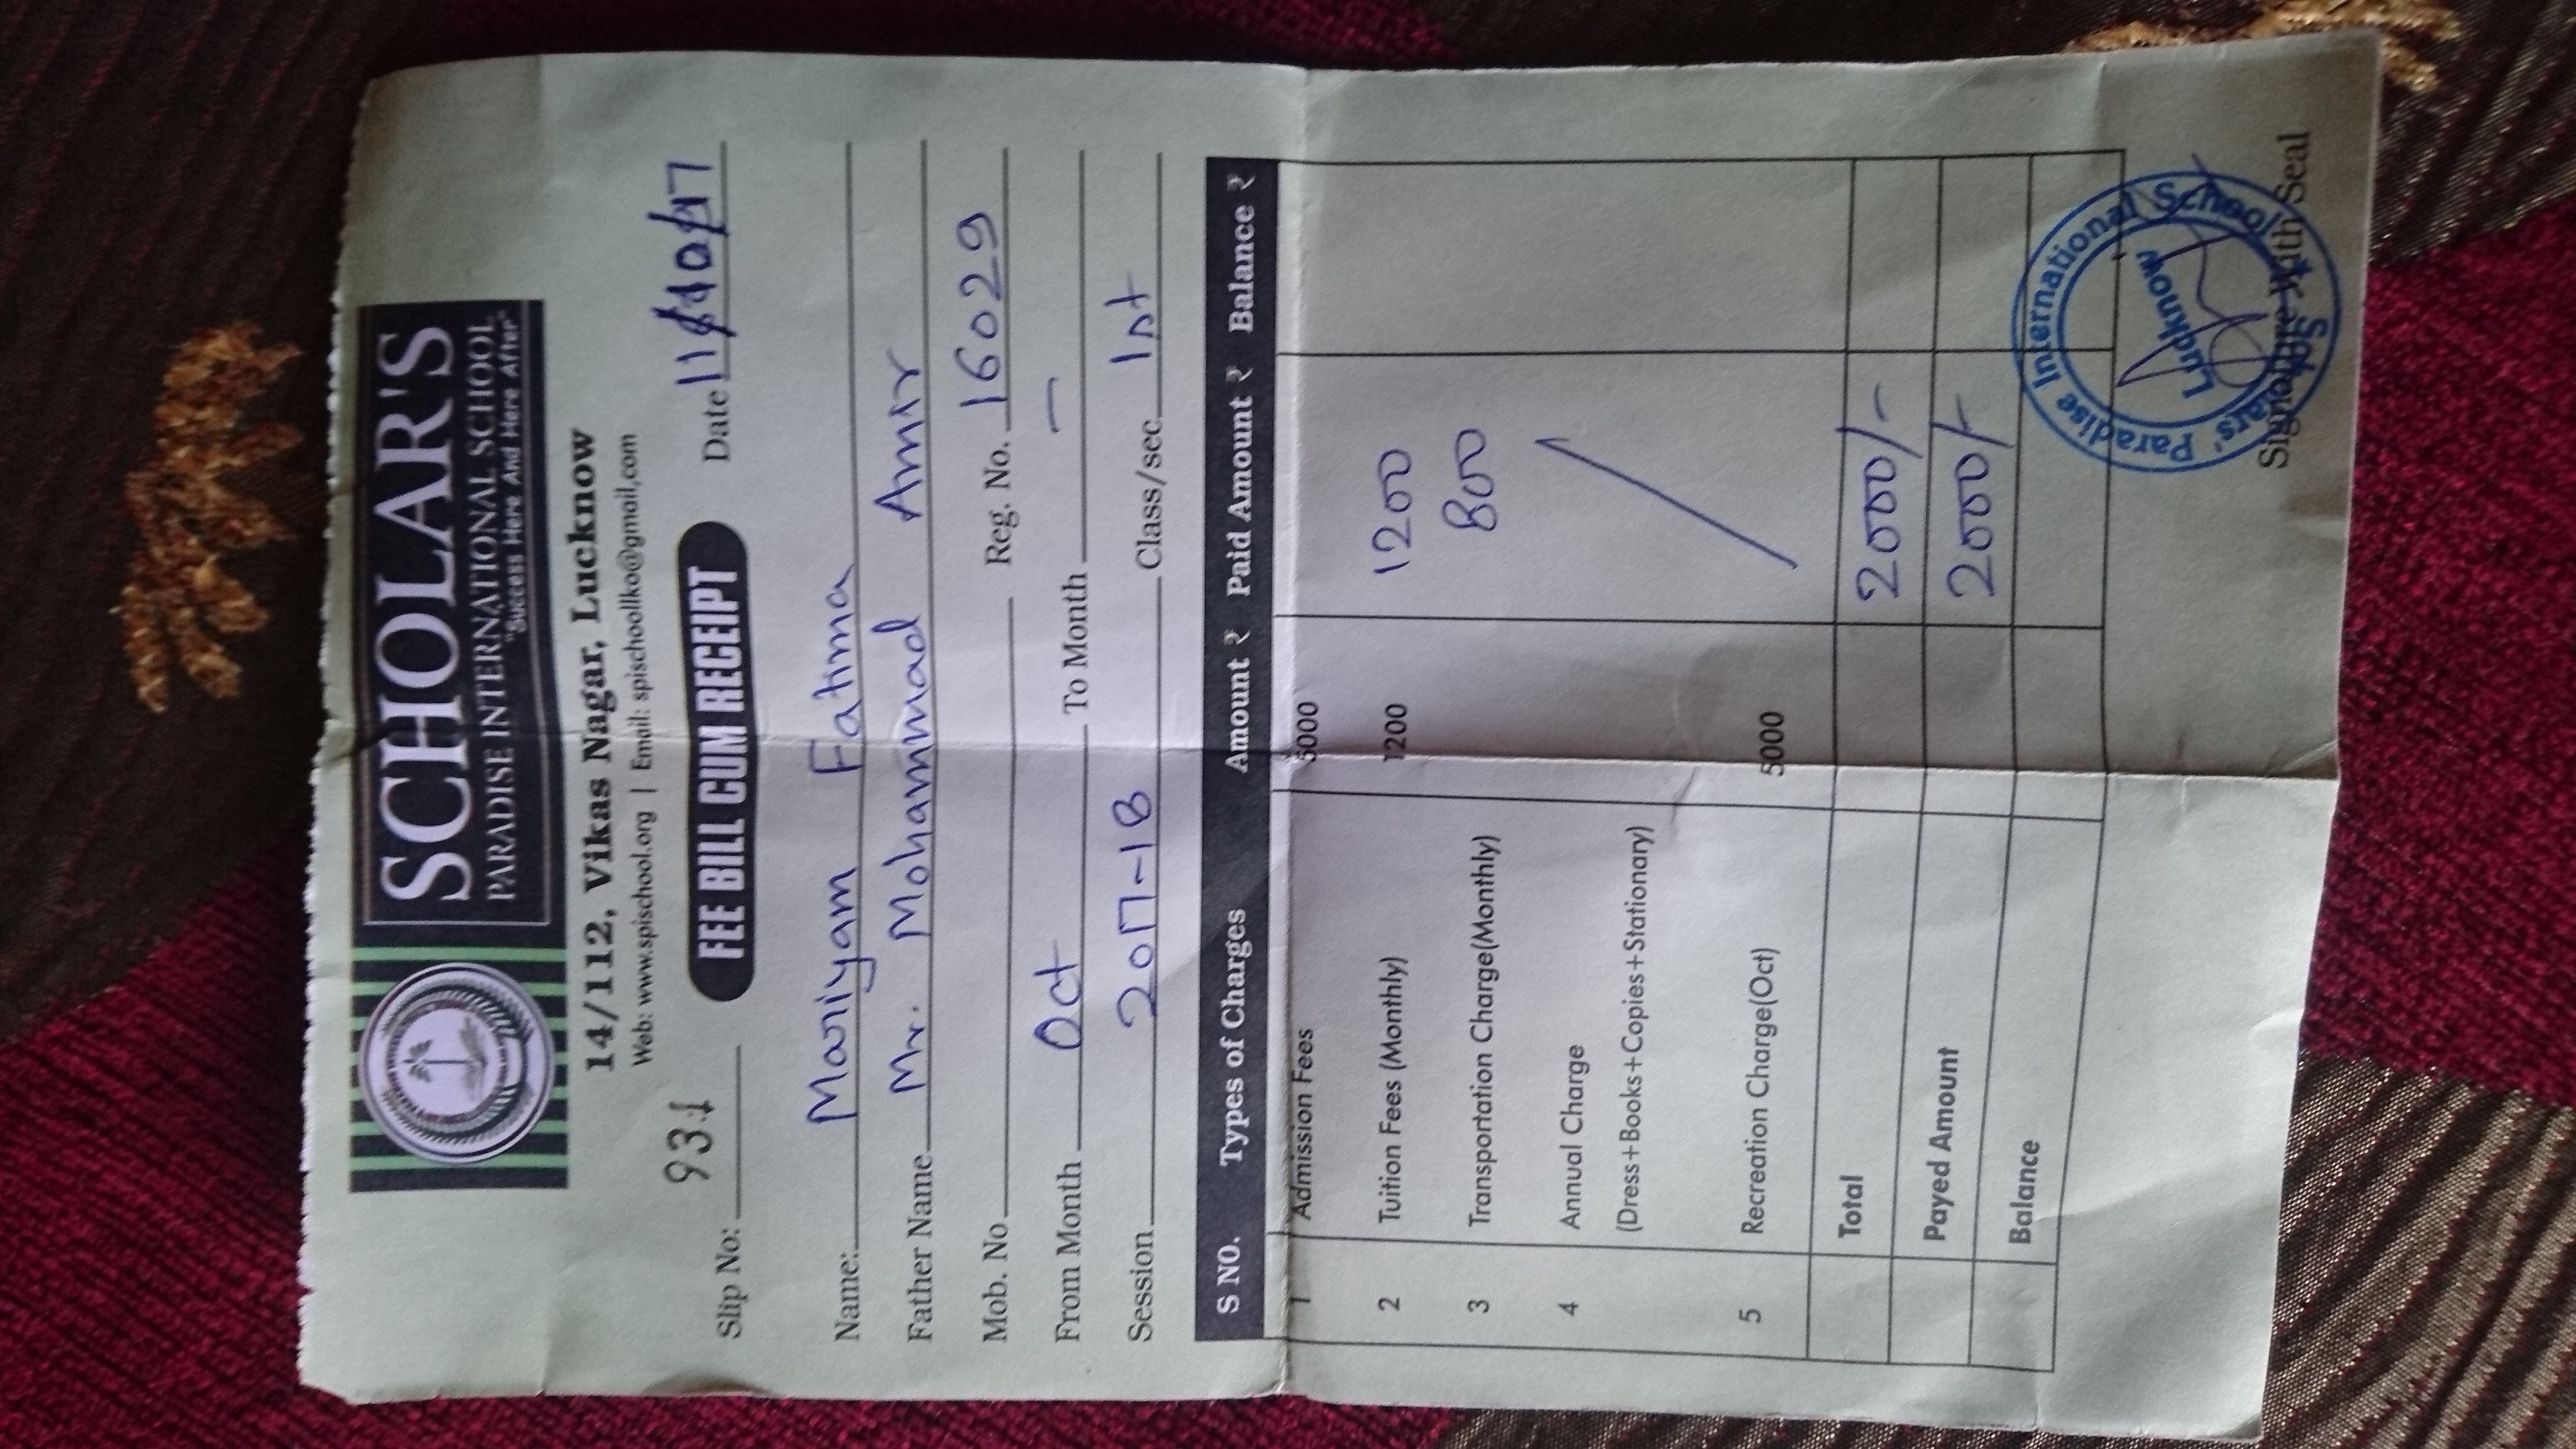 SCHOLAR'S
PARADISE INTERNATIONAL SCHOOL
"Success Here And Here After"
14/112, Vikas Nagar, Lucknow
Web: www.spischool.org | Email: spischoollko@gmail,com
Slip No: 931 FEE BILL CUM RECEIPT Date 11/10/17
Name: Mariyam Fatima
Father Name Mr. Mohammad Amir
Mob. No Reg. No. 16029
From Month Oct To Month —
Session 2017-18 Class/sec 1st
S NO. Types of Charges Amount ₹ Paid Amount ₹ Balance ₹
1 Admission Fees 5000
2 Tuition Fees (Monthly) 1200 1200
3 Transportation Charge(Monthly) 800
4 Annual Charge
(Dress+Books+Copies+Stationary)
5 Recreation Charge(Oct) 5000
Total 2000/-
Payed Amount 2000/-
Balance
Scholars' Paradise International School
Lucknow
Signature With Seal